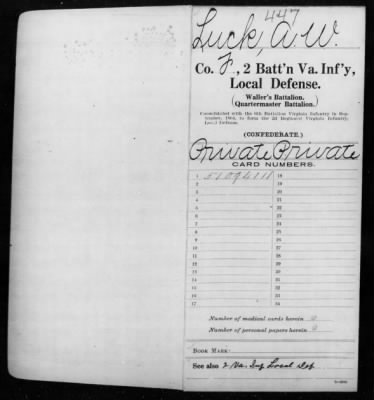 447
Luck, A. W.
Co. F, 2 Batt'n Va. Inf'y,
Local Defense.
(Waller's Battalion.
Quartermaster Battalion.)
Consolidated with the 6th Battalion Virginia Infantry in September, 1864, to form the 2d Regiment Virginia Infantry, Local Defense.
(CONFEDERATE.)
Private Private
CARD NUMBERS.
1 51094111 18
2 19
3 20
4 21
5 22
6 23
7 24
8 25
9 26
10 27
11 28
12 29
13 30
14 31
15 32
16 33
17 34
Number of medical cards herein 0
Number of personal papers herein 0
BOOK MARK:
See also 2 Va. Inf. Local Def.